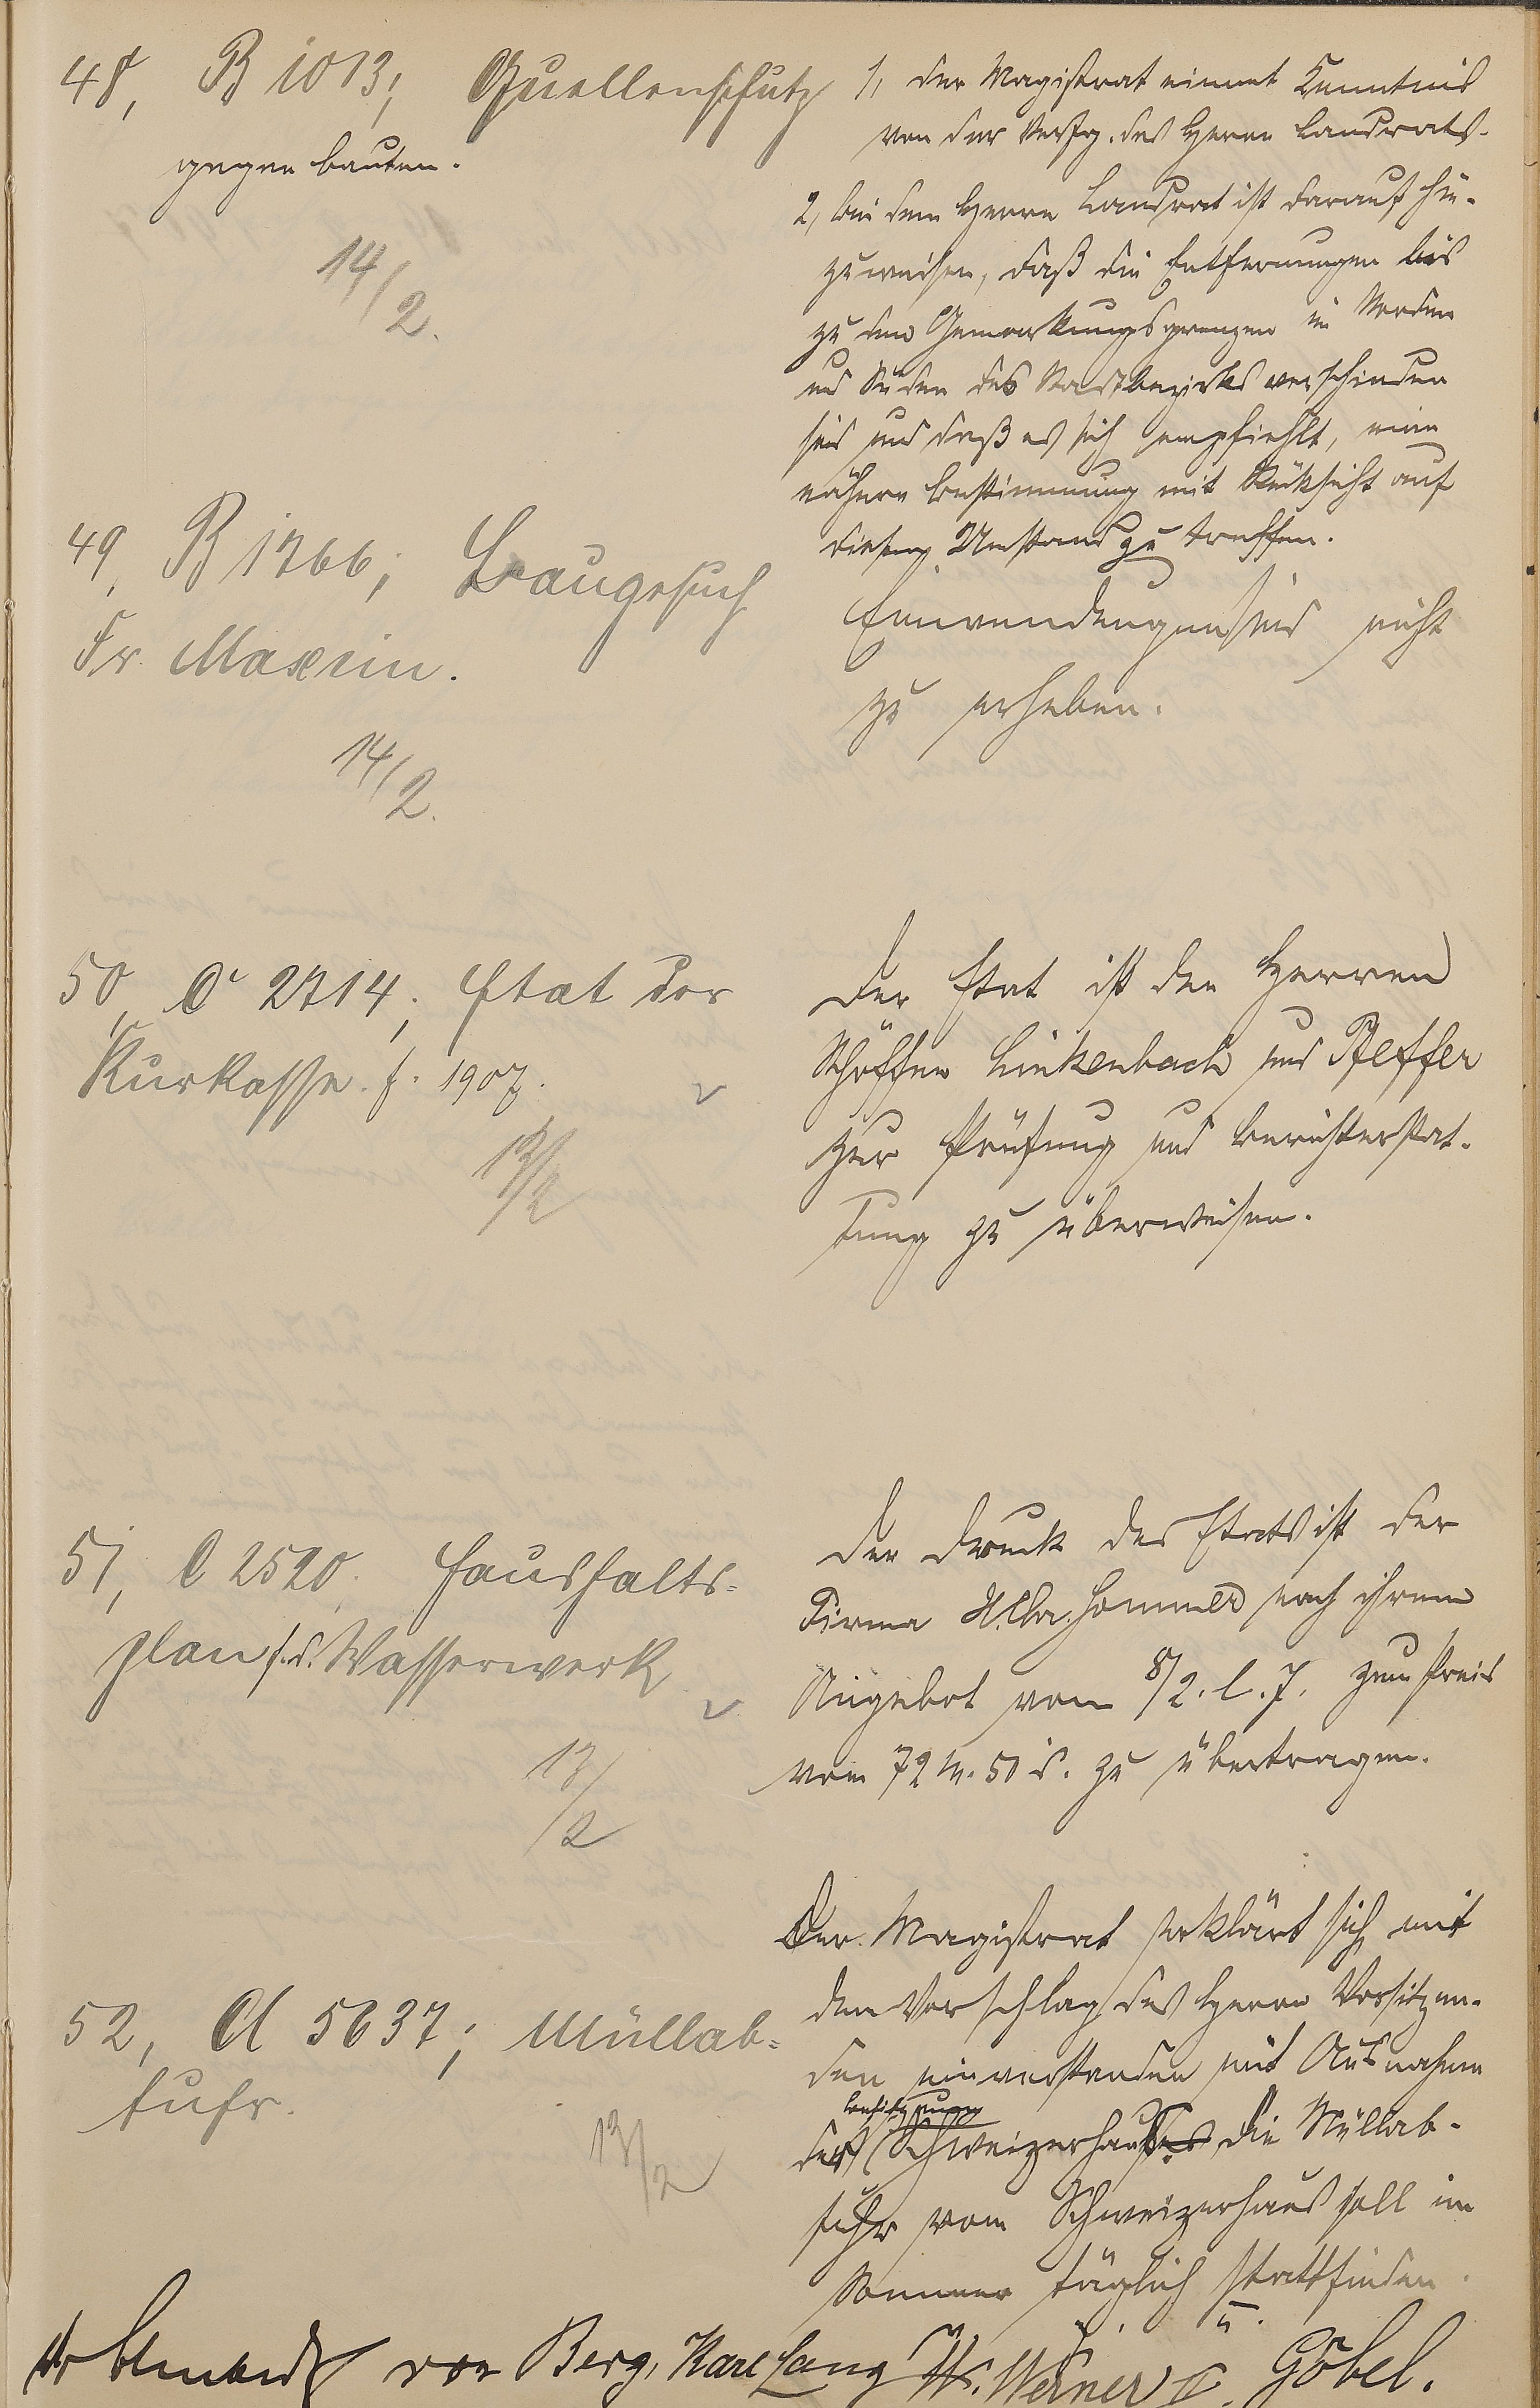 48, B 1013; Quellenschutz
gegen Bauten.
14/2.
1, Der Magistrat nimmt Kenntnis
von der Verfg. des Herrn Landrats.
2, bei dem Herrn Landrat ist darauf hin-
zuweisen, daß die Entfernungen bis
zu den Gemarkungsgrenzen im Norden
und Süden des Stadtbezirks verschieden
sind und daß es sich empfiehlt, eine
nähere Bestimmung mit Rücksicht auf
diesen Umstand zu treffen.
49, B 1766; Baugesuch
Fr. Maxein.
14/2.
Einwendungen sind nicht
zu erheben.
50, C 2714; Etat der
Kurkasse f. 1907.
13/2
Der Etat ist den Herren
Schöffen Linkenbach und Pfeffer
zur Prüfung und Berichterstat-
tung zu überweisen.
51, C 2520. Haushalts-
plan f. d. Wasserwerk
13/2
Der Druck des Etats ist der
Firma Sommer nach ihrem
Angebot vom 8/2. l. J. zum Preis
von 72 M. 50 zu übertragen.
52, A 5637; Müllab-
fuhr.
13/2
Der Magistrat erklärt sich mit
dem Vorschlag des Herrn Vorsitzen-
den einverstanden mit Ausnahme
Besitzung
der Schweizerhaus. Die Müllab-
fuhr vom Schweizerhaus soll im
Sommer täglich stattfinden.
v. g. u.
von Berg, Karl Lang W. Werner II. Göbel.